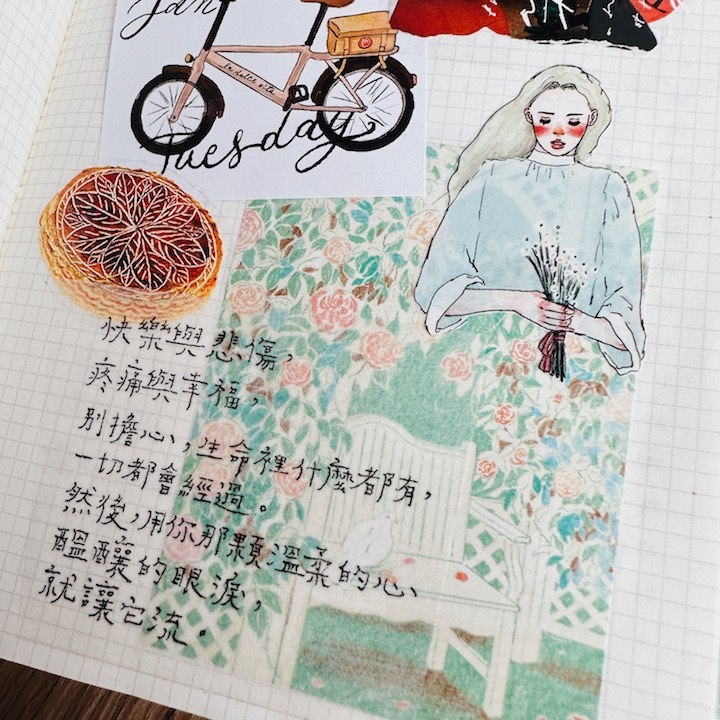 Jan
La dolce vita
Tuesday,
快樂與悲傷，
疼痛與幸福，
別擔心，生命裡什麼都有，
一切都會經過。
然後，用你那顆溫柔的心、
醞釀的眼淚，
就讓它流。